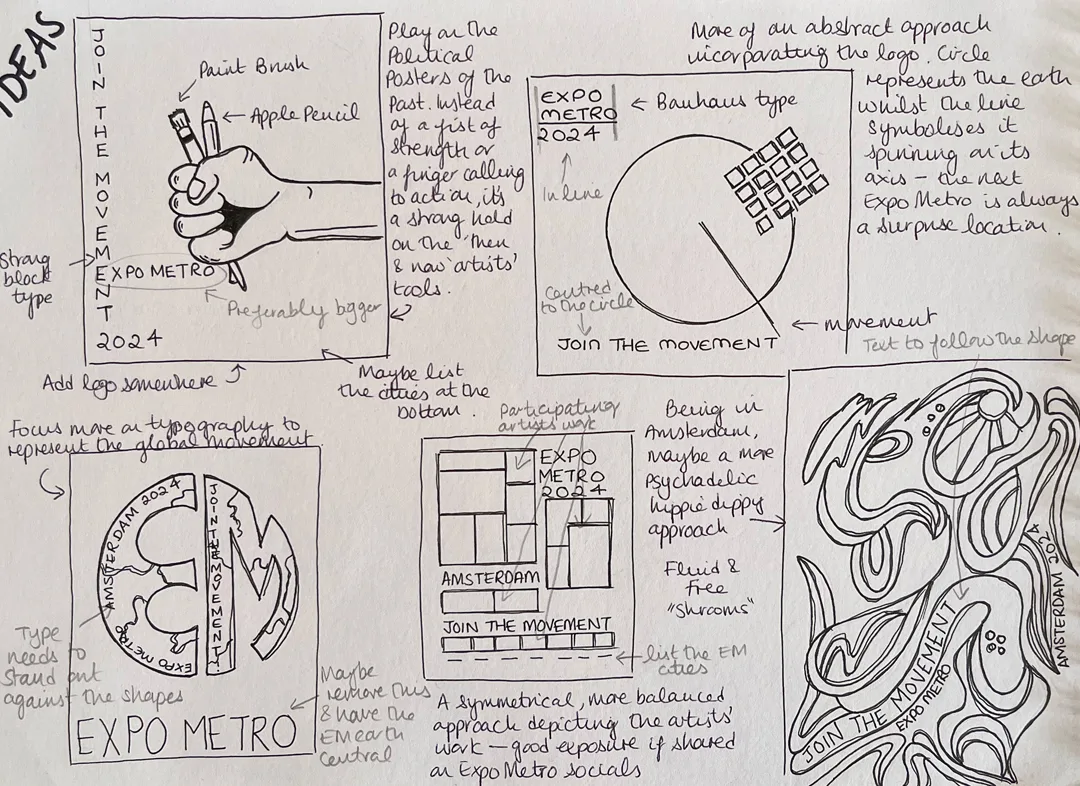 IDEAS
JOIN THE MOVEMENT
2024
Paint Brush
Apple Pencil
EXPO METRO
Strong
block
type
Preferably bigger
Add logo somewhere
Maybe list
the cities at the
bottom.
Play on the
Political
Posters of the
Past. Instead
of a fist of
strength or
a finger calling
to action, it's
a strong hold
on the 'then
& now' artists'
tools.
More of an abstract approach
incorporating the logo. Circle
represents the eath
whilst the line
symbolises it
spinning on its
axis – the next
Expo Metro is always
a surprise location.
EXPO
METRO
2024
Bauhaus type
In line
Centred
to the circle
JOIN THE MOVEMENT
movement
Text to follow the shape
Focus more on typography to
represent the global movement
AMSTERDAM 2024
EXPO METRO
JOIN THE MOVEMENT
Type
needs to
stand out
against the shapes
EXPO METRO
Maybe
remove this
& have the
EM earth
central
Participating
artists work
EXPO
METRO
2024
AMSTERDAM
JOIN THE MOVEMENT
list the EM
cities
A symmetrical, more balanced
approach depicting the artists'
work – good exposure if shared
on Expo Metro socials
Being in
Amsterdam,
maybe a more
Psychadelic
hippie dippy
approach
Fluid &
free
"Shrooms"
JOIN THE MOVEMENT
EXPO METRO
AMSTERDAM 2024